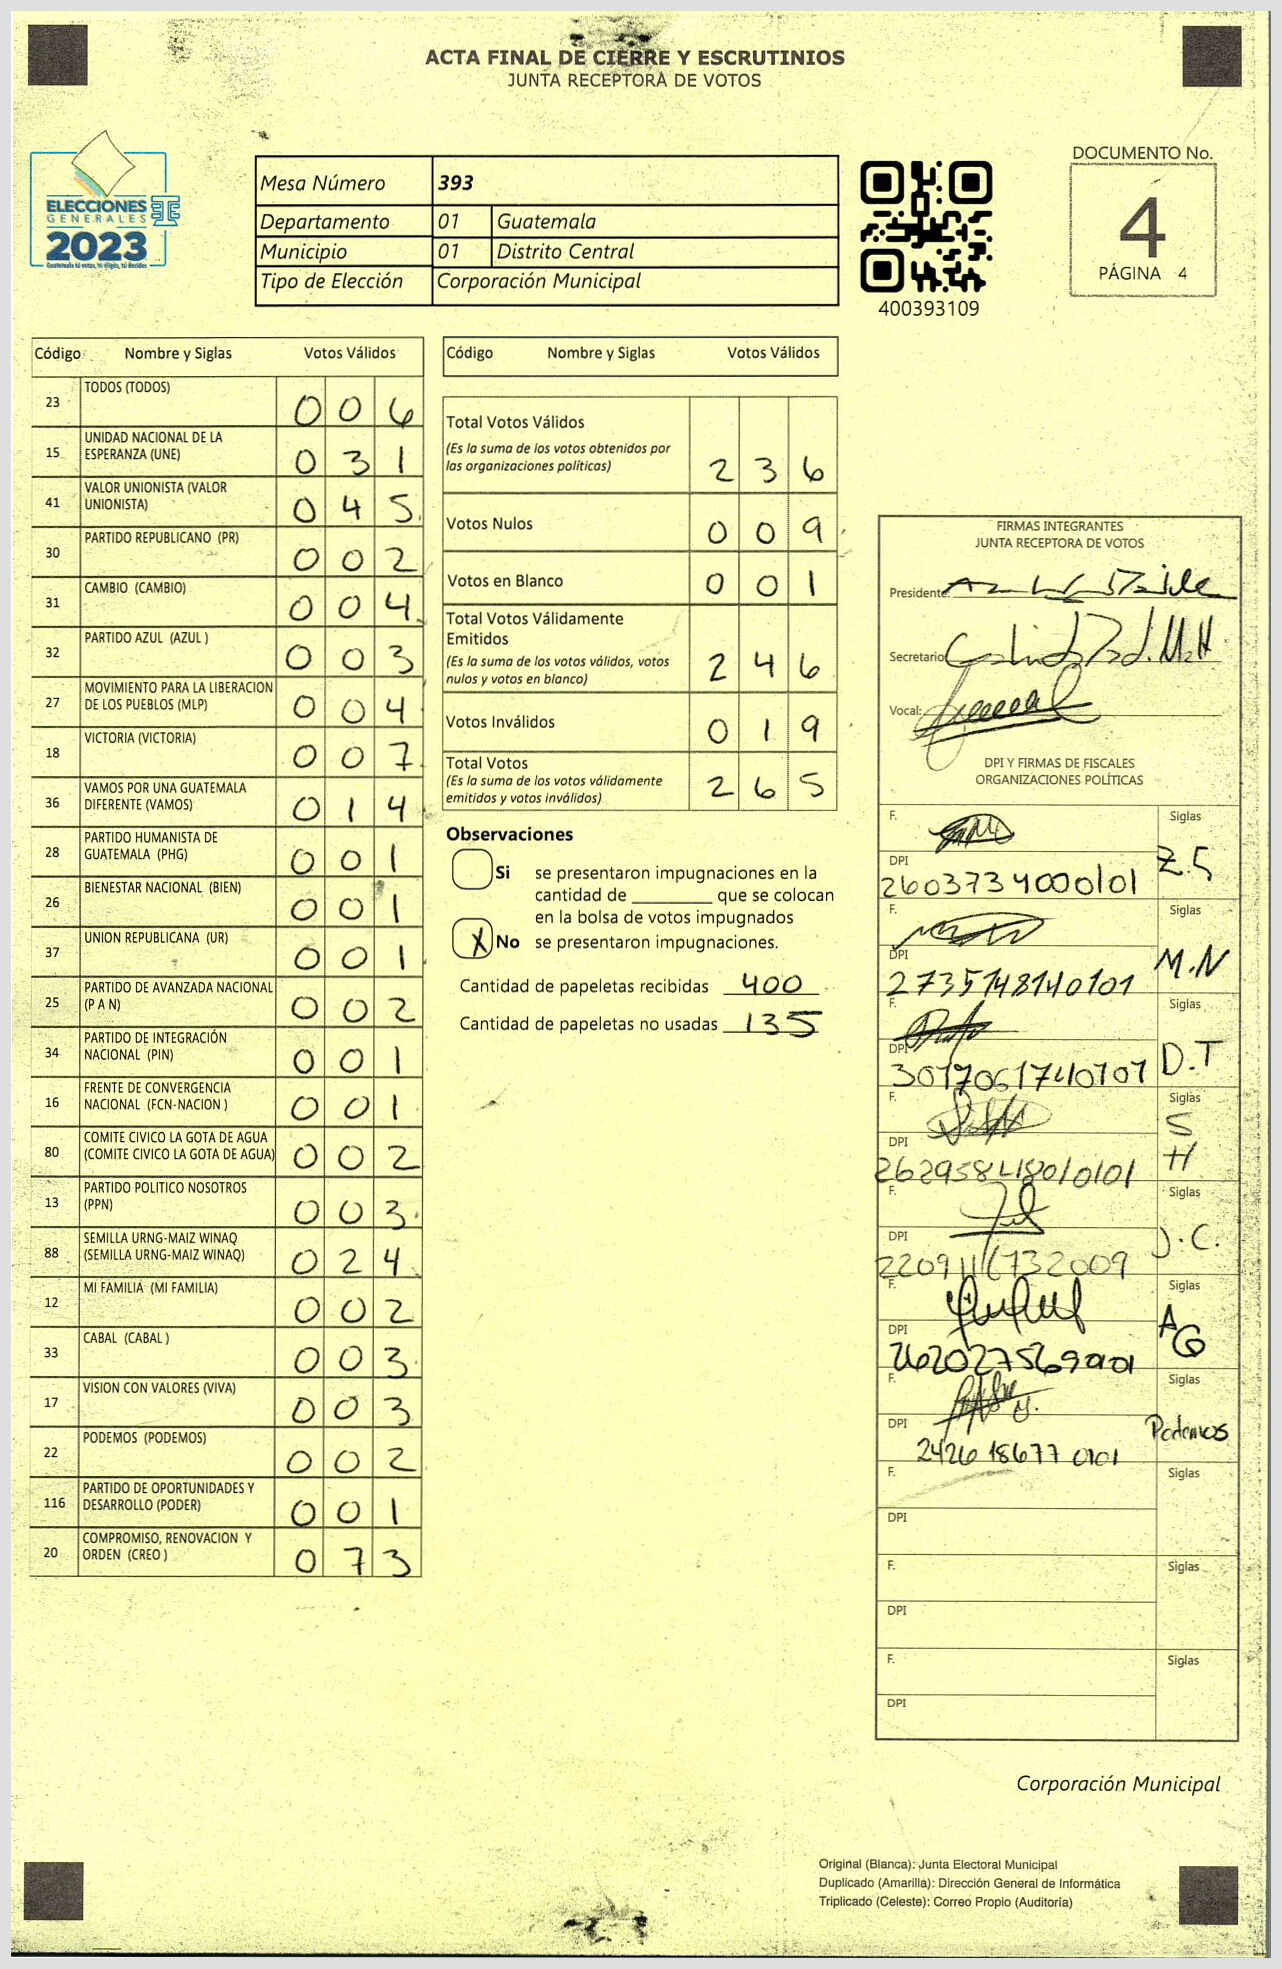 ACTA FINAL DE CIERRE Y ESCRUTINIOS
JUNTA RECEPTORA DE VOTOS
ELECCIONES
GENERALES
2023
Guatemala tú votas, tú eliges, tú decides
Mesa Número 393
Departamento 01 Guatemala
Municipio 01 Distrito Central
Tipo de Elección Corporación Municipal
400393109
DOCUMENTO No.
4
PÁGINA 4
Código Nombre y Siglas Votos Válidos
23 TODOS (TODOS) 0 0 6
15 UNIDAD NACIONAL DE LA
ESPERANZA (UNE) 0 3 1
41 VALOR UNIONISTA (VALOR
UNIONISTA) 0 4 5
30 PARTIDO REPUBLICANO (PR) 0 0 2
31 CAMBIO (CAMBIO) 0 0 4
32 PARTIDO AZUL (AZUL ) 0 0 3
27 MOVIMIENTO PARA LA LIBERACION
DE LOS PUEBLOS (MLP) 0 0 4
18 VICTORIA (VICTORIA) 0 0 7
36 VAMOS POR UNA GUATEMALA
DIFERENTE (VAMOS) 0 1 4
28 PARTIDO HUMANISTA DE
GUATEMALA (PHG) 0 0 1
26 BIENESTAR NACIONAL (BIEN) 0 0 1
37 UNION REPUBLICANA (UR) 0 0 1
25 PARTIDO DE AVANZADA NACIONAL
(P A N) 0 0 2
34 PARTIDO DE INTEGRACIÓN
NACIONAL (PIN) 0 0 1
16 FRENTE DE CONVERGENCIA
NACIONAL (FCN-NACION ) 0 0 1
80 COMITE CIVICO LA GOTA DE AGUA
(COMITE CIVICO LA GOTA DE AGUA) 0 0 2
13 PARTIDO POLITICO NOSOTROS
(PPN) 0 0 3
88 SEMILLA URNG-MAIZ WINAQ
(SEMILLA URNG-MAIZ WINAQ) 0 2 4
12 MI FAMILIA (MI FAMILIA) 0 0 2
33 CABAL (CABAL ) 0 0 3
17 VISION CON VALORES (VIVA) 0 0 3
22 PODEMOS (PODEMOS) 0 0 2
116 PARTIDO DE OPORTUNIDADES Y
DESARROLLO (PODER) 0 0 1
20 COMPROMISO, RENOVACION Y
ORDEN (CREO ) 0 7 3
Código Nombre y Siglas Votos Válidos
Total Votos Válidos
(Es la suma de los votos obtenidos por
las organizaciones políticas) 2 3 6
Votos Nulos 0 0 9
Votos en Blanco 0 0 1
Total Votos Válidamente
Emitidos
(Es la suma de los votos válidos, votos
nulos y votos en blanco) 2 4 6
Votos Inválidos 0 1 9
Total Votos
(Es la suma de los votos válidamente
emitidos y votos inválidos) 2 6 5
Observaciones
Si se presentaron impugnaciones en la
cantidad de ________ que se colocan
en la bolsa de votos impugnados
X No se presentaron impugnaciones.
Cantidad de papeletas recibidas 400
Cantidad de papeletas no usadas 135
FIRMAS INTEGRANTES
JUNTA RECEPTORA DE VOTOS
Presidente:
Secretario
Vocal:
DPI Y FIRMAS DE FISCALES
ORGANIZACIONES POLÍTICAS
F. Siglas
DPI Z.5
2603734000101
F. Siglas
DPI M.N
2735148140101
F. Siglas
DPI D.T
F. Siglas
DPI S
H
F. Siglas
DPI J.C.
F. Siglas
DPI AG
2620275690101
F. Siglas
DPI Podemos
2426 18677 0101
F. Siglas
DPI
F. Siglas
DPI
F. Siglas
DPI
Corporación Municipal
Original (Blanca): Junta Electoral Municipal
Duplicado (Amarilla): Dirección General de Informática
Triplicado (Celeste): Correo Propio (Auditoría)